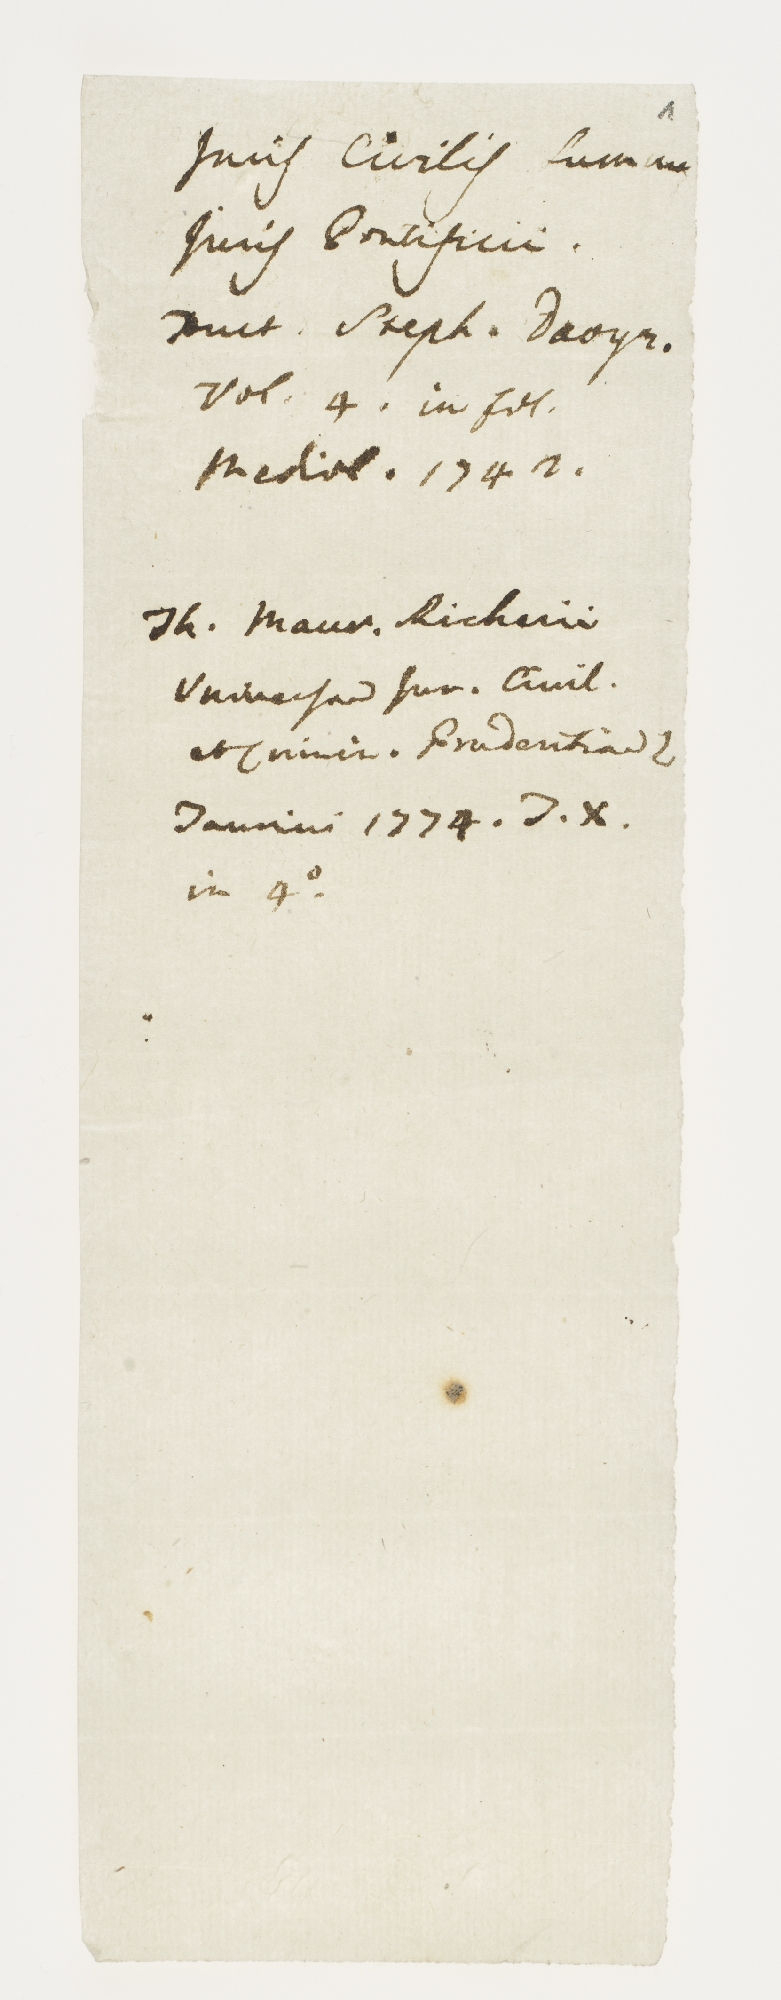 1
Juris Civilis summa
Juris Pontificii.
Auct. Steph. Daoyz.
Vol. 4. in fol.
Mediol. 1742.
Th. Maur. Richerii
Universae Jur. Civil.
et Crimin. Prudentiae
Taurini 1774. T. X.
in 4°.